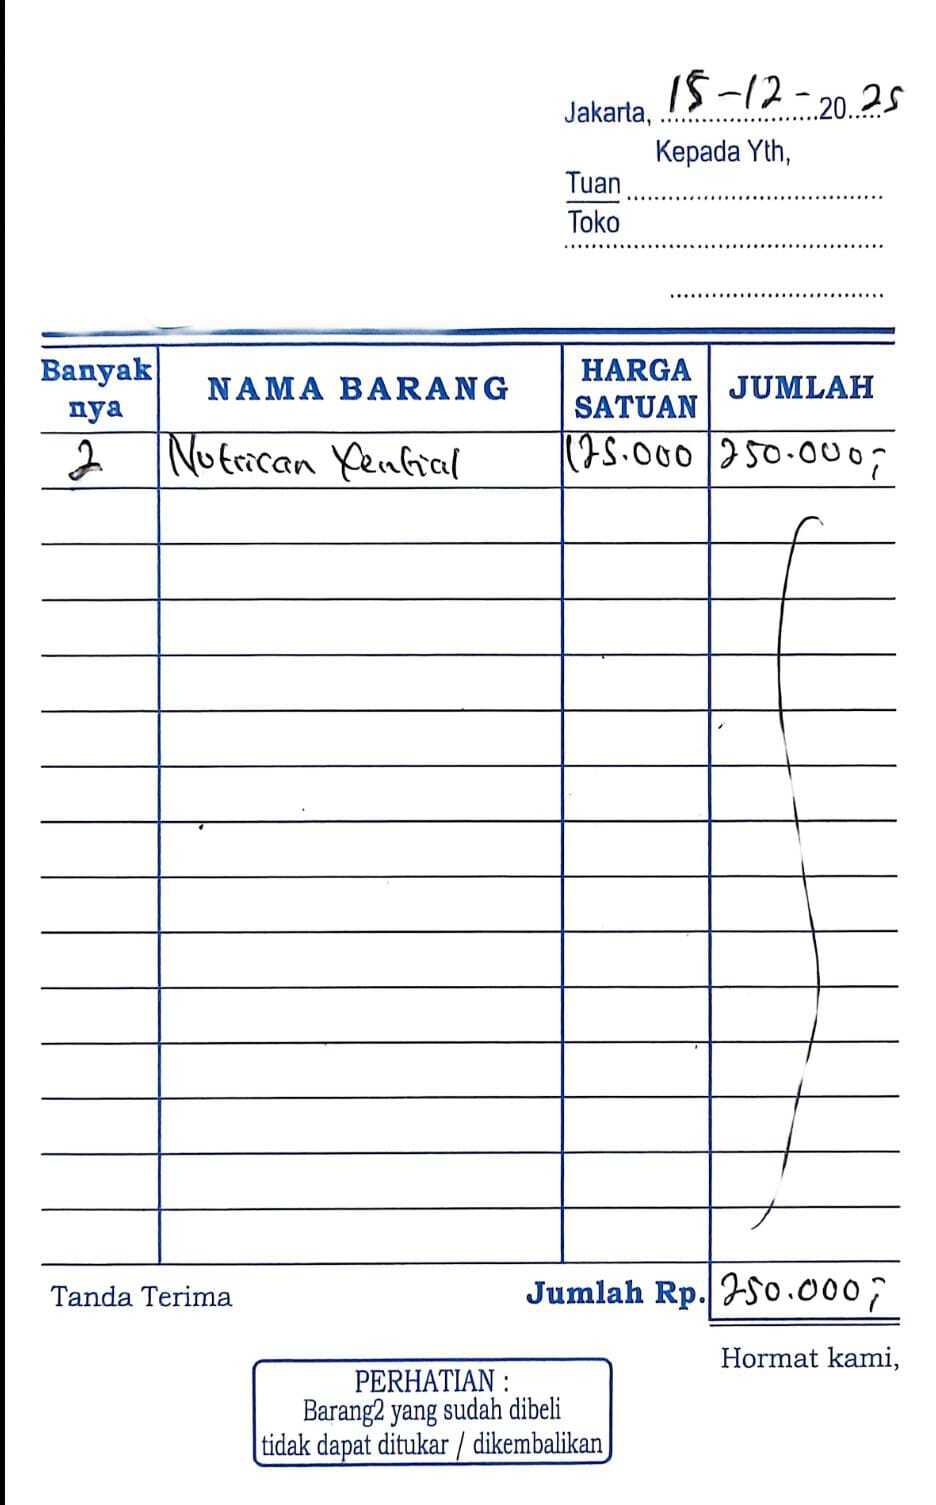 Jakarta, 15-12-2025
Kepada Yth,
Tuan
Toko
Banyak nya NAMA BARANG HARGA SATUAN JUMLAH
2 Nutrican 125.000 250.000,-
Tanda Terima Jumlah Rp. 250.000,-
Hormat kami,
PERHATIAN :
Barang2 yang sudah dibeli
tidak dapat ditukar / dikembalikan